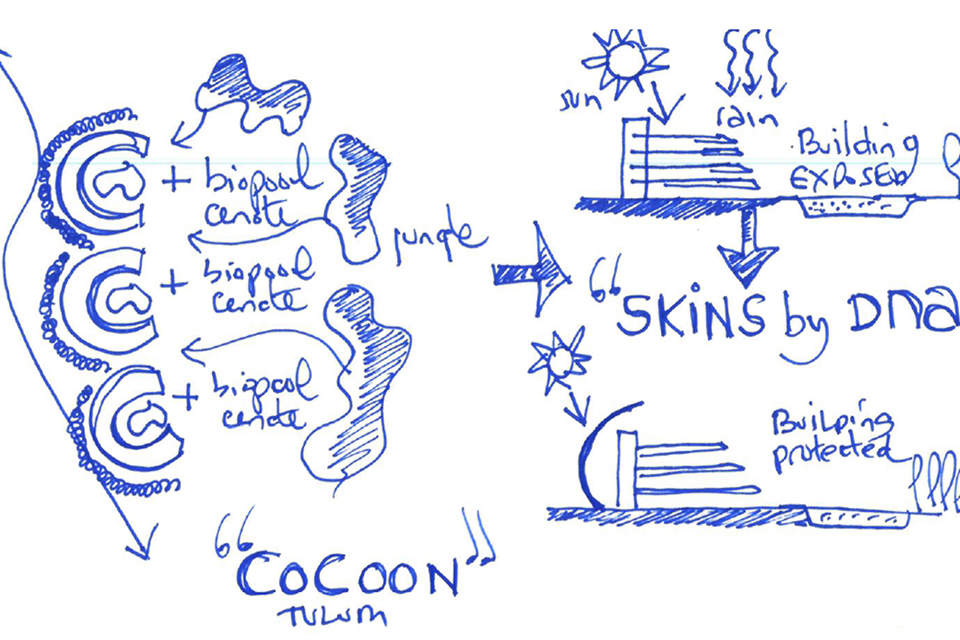 + biopool
cenote
+ biopool
cenote
+ biopool
cenote
jungle
“COCOON”
TULUM
sun
rain
Building
EXPOSED
“SKINS by DNA
BUILDING
protected